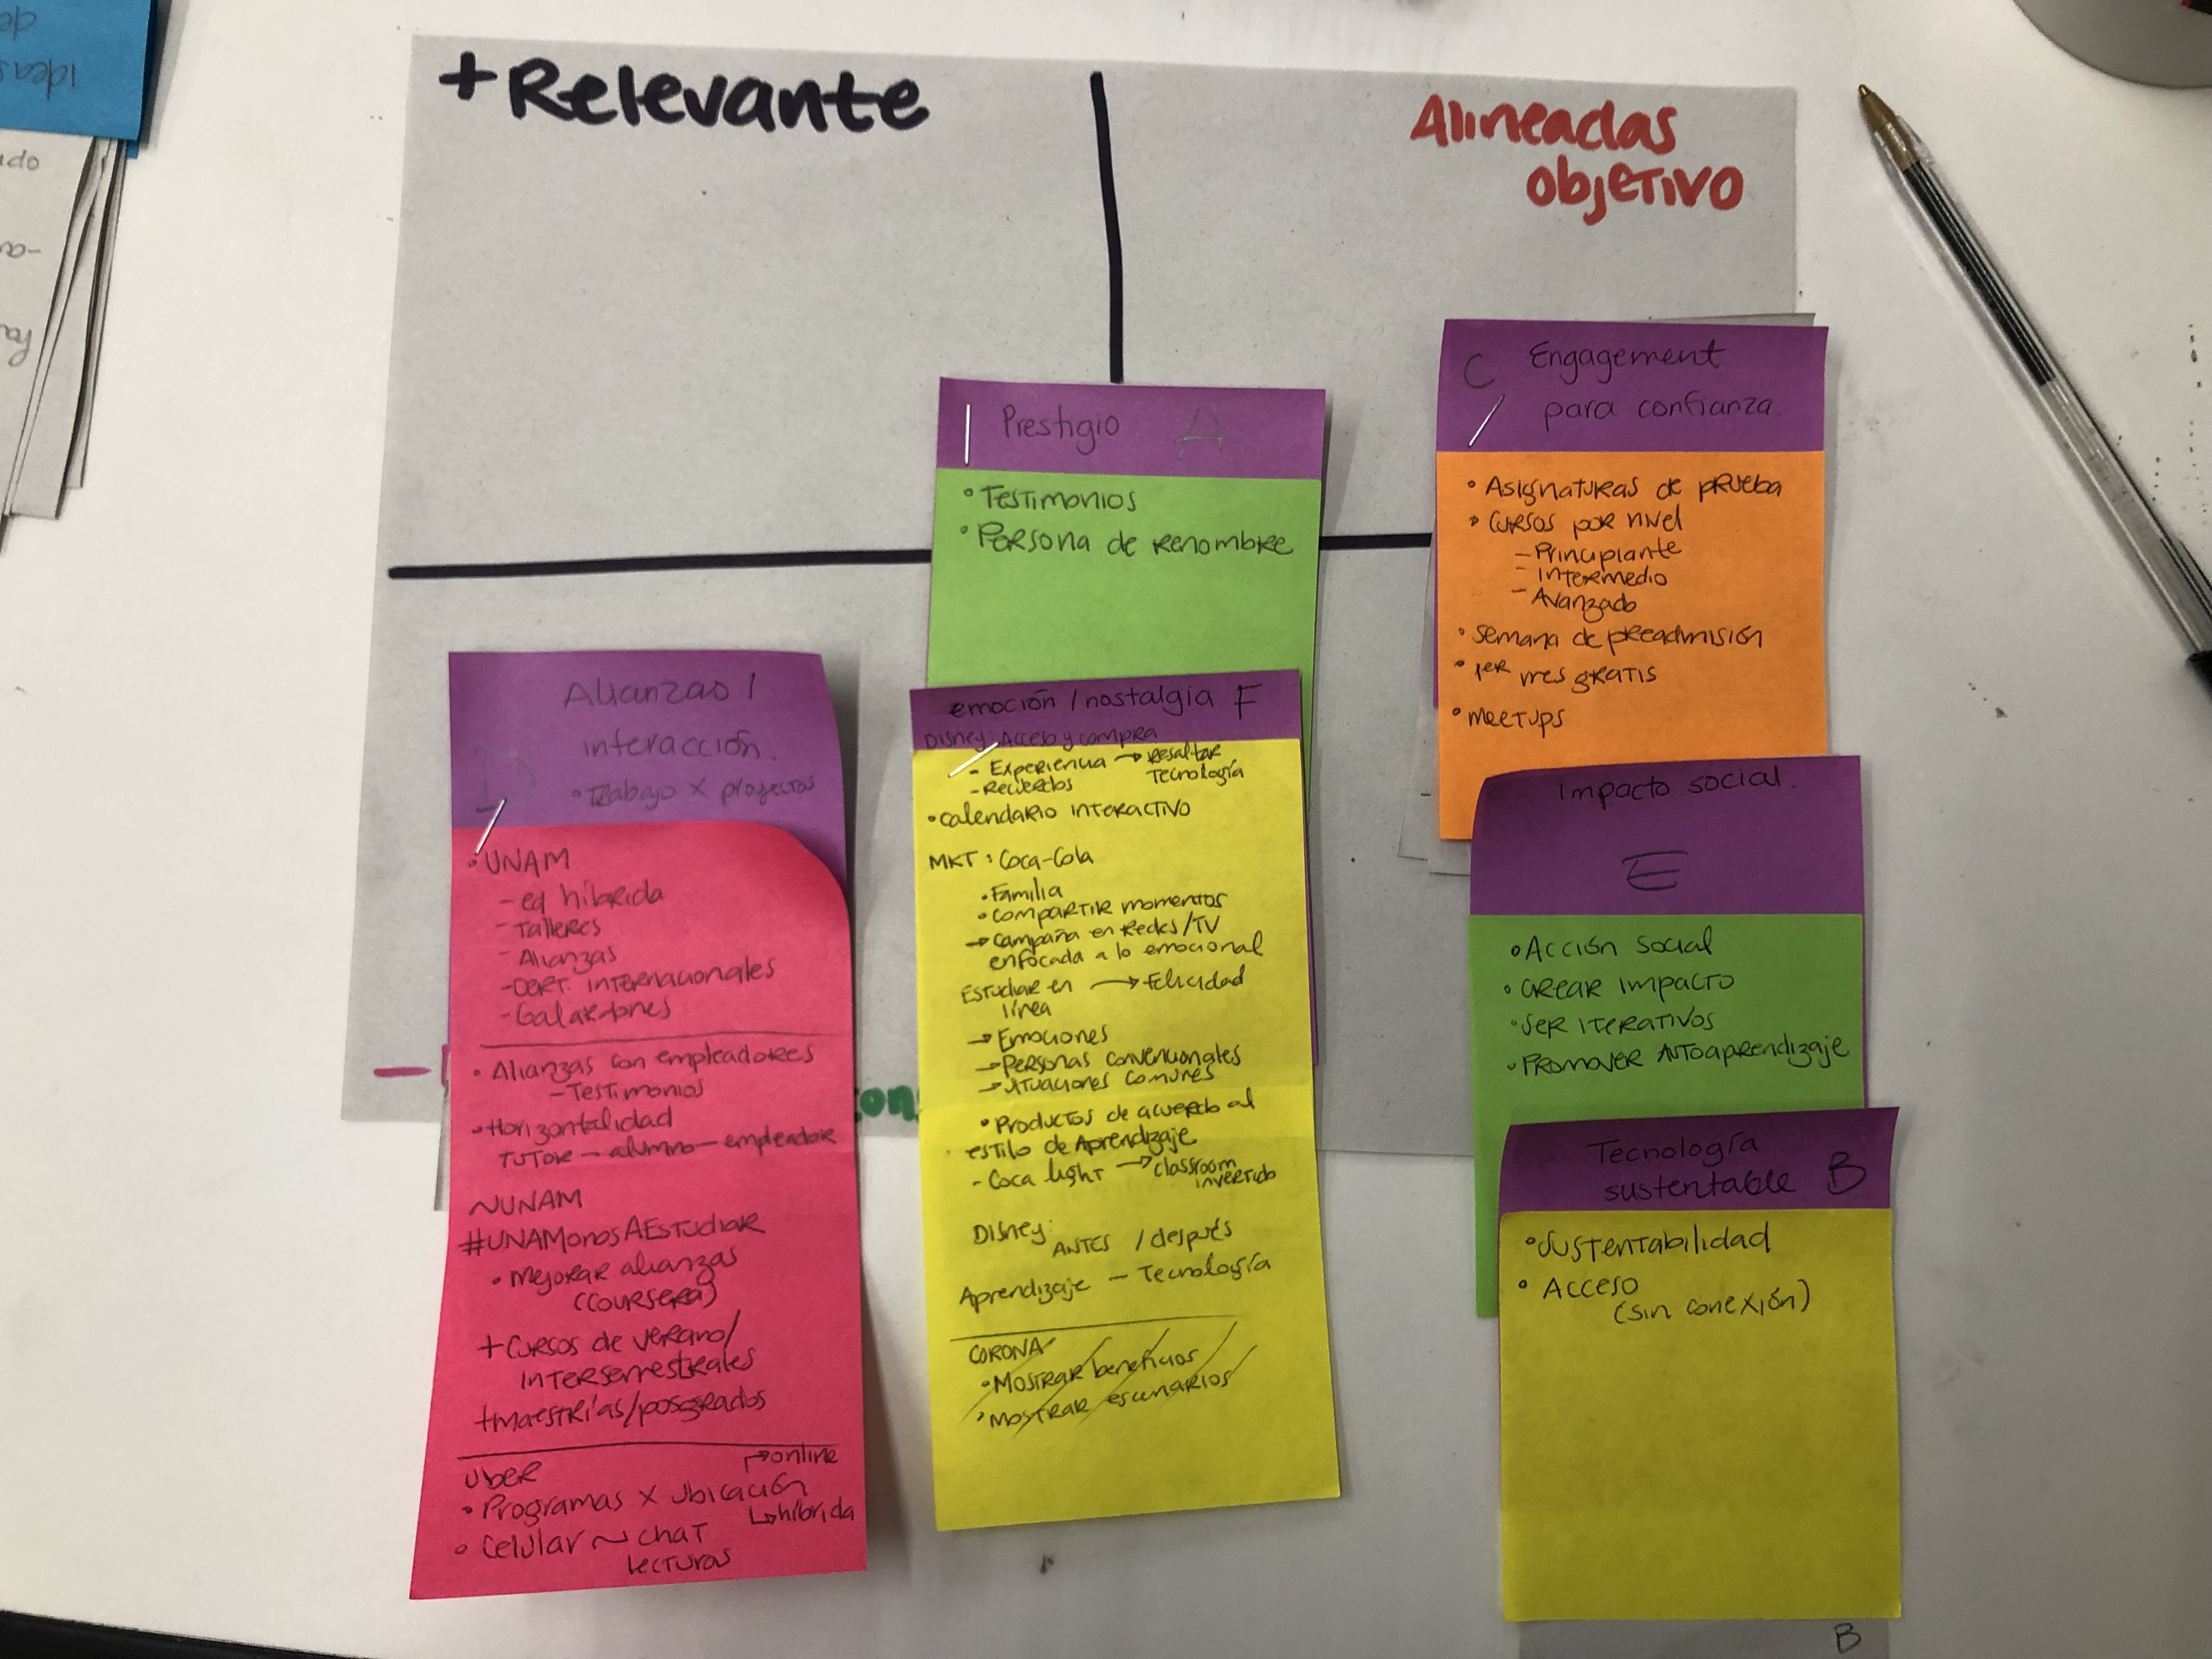 +Relevante
Alineadas
objetivo
Alianzas /
interacción.
• Trabajo x proyectos
D
• UNAM
- ed híbrida
- Talleres
- Alianzas
- CERT. INTERNACIONALES
- Galardones
• Alianzas con empleadores
- Testimonios
• Horizontalidad
TUTOR - alumno - empleador
~UNAM
#UNAMonosAEstudiar
• Mejorar alianzas
(COURSERA)
+ Cursos de verano/
intersemestrales
+maestrías/posgrados
UBER
• Programas x ubicación
↱online
↳híbrida
• Celular ~ chat
lecturas
Prestigio
A
• Testimonios
• Persona de renombre
emoción / nostalgia F
DISNEY: Acceso y compra
• Experiencia → resaltar
Tecnología
- Recuerdos
• Calendario interactivo
MKT: Coca-Cola
• Familia
• Compartir momentos
→ Campaña en redes/TV
enfocada a lo emocional
Estudiar en → Felicidad
línea
→ Emociones
→ Personas convencionales
→ Situaciones comunes
• Productos de acuerdo al
estilo de Aprendizaje
- Coca light → classroom
invertido
Disney: ANTES / después
Aprendizaje - Tecnología
CORONA
• Mostrar beneficios
• Mostrar escenarios
C Engagement
para confianza.
• Asignaturas de prueba
• Cursos por nivel
- Principiante
- Intermedio
- Avanzado
• Semana de preadmisión
• 1er mes gratis
• Meetups
Impacto social.
E
• Acción social
• Crear impacto
• Ser iterativos
• Promover Autoaprendizaje
Tecnología
sustentable B
• Sustentabilidad
• Acceso
(sin conexión)
B